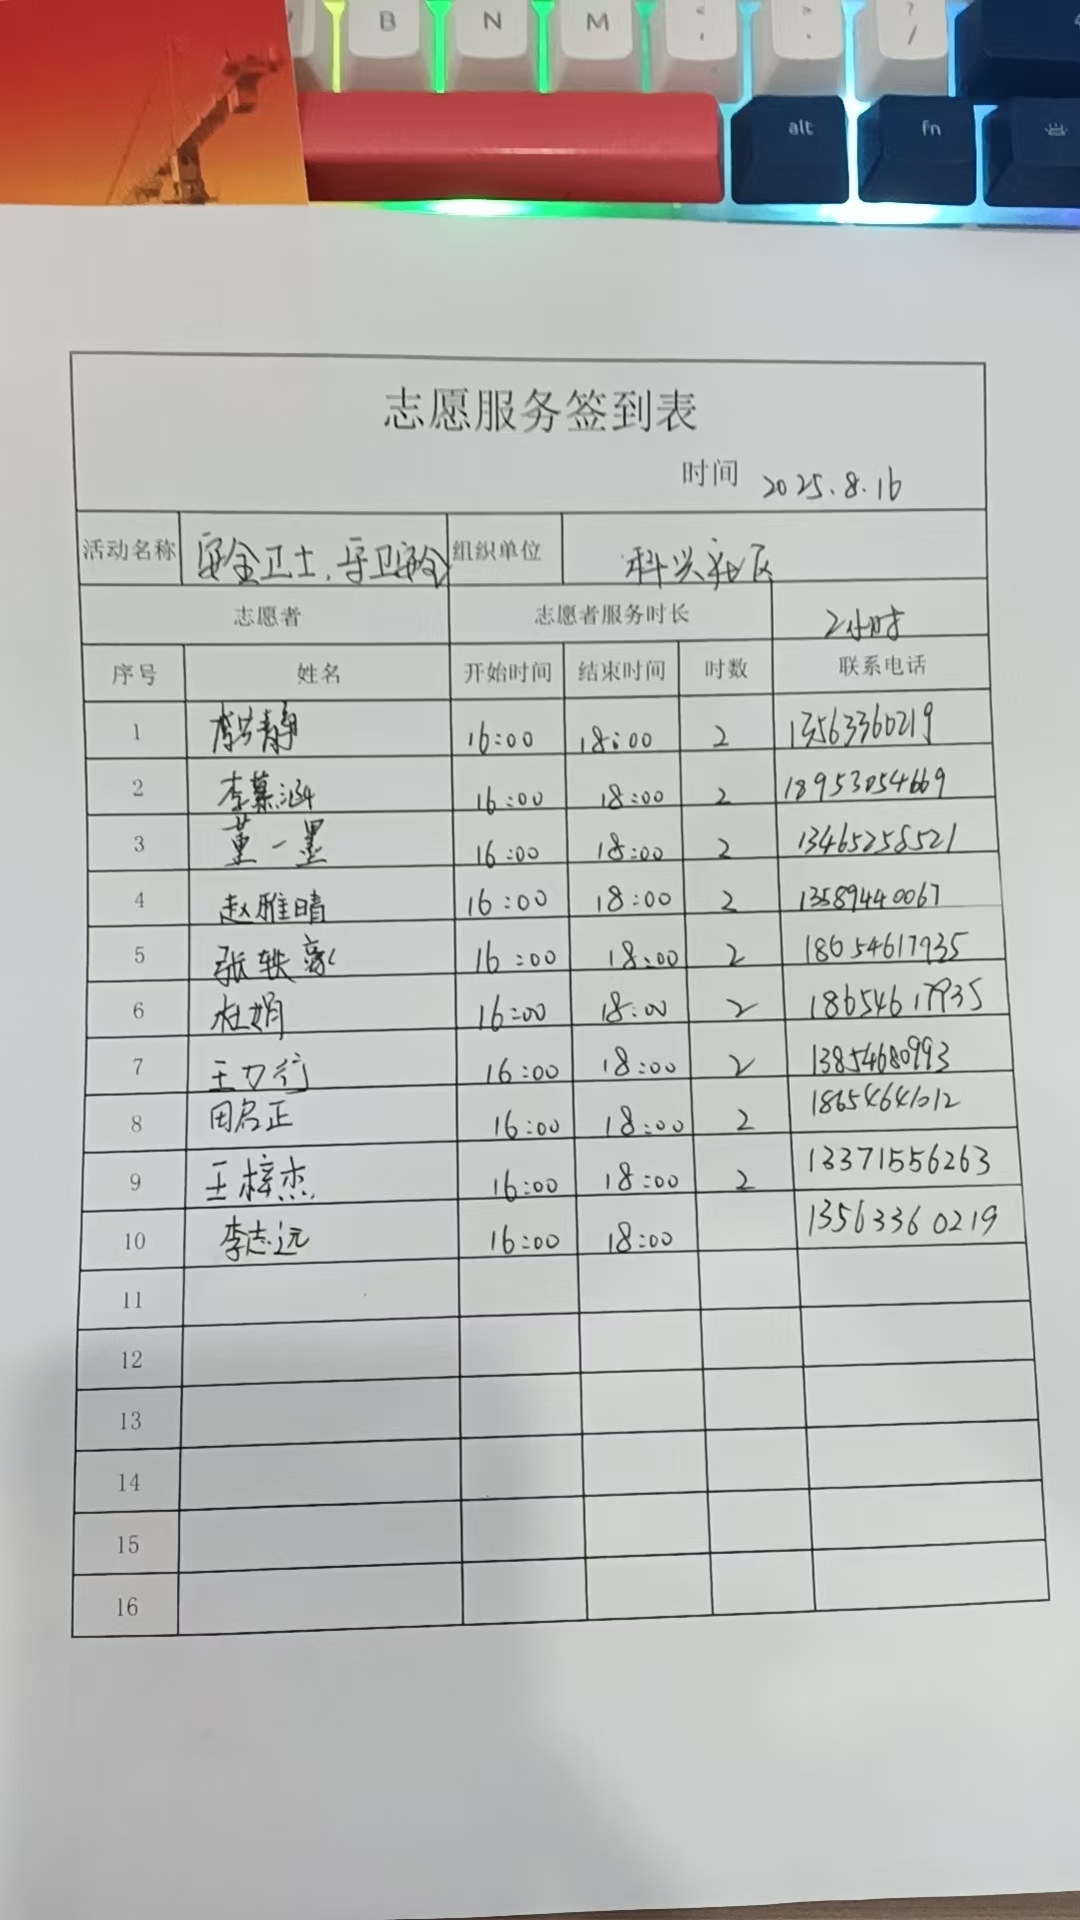 B N M < , > . ? /
alt fn
志愿服务签到表
时间 2025.8.16
活动名称 安全卫士,守卫安全 组织单位 科兴社区
志愿者 志愿者服务时长 2小时
序号 姓名 开始时间 结束时间 时数 联系电话
1 静 16:00 18:00 2 13563360219
2 李慕涵 16:00 18:00 2 18953054669
3 董一墨 16:00 18:00 2 13465258521
4 赵雅晴 16:00 18:00 2 13589440067
5 张轶豪 16:00 18:00 2 18654617935
6 杜娟 16:00 18:00 2 18654617935
7 王力行 16:00 18:00 2 13854680993
8 田启正 16:00 18:00 2 18654641012
9 王梓杰 16:00 18:00 2 13371556263
10 李志远 16:00 18:00 13563360219
11
12
13
14
15
16